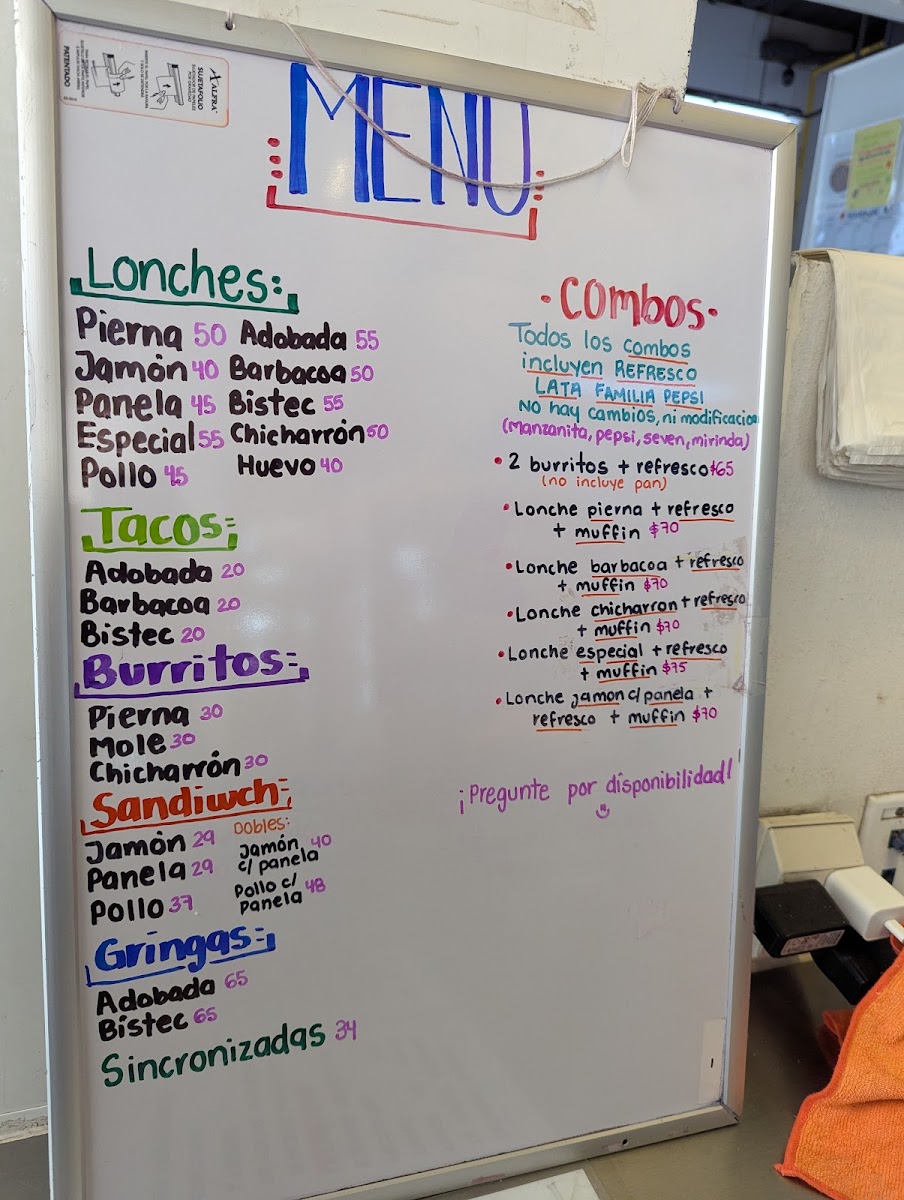 ALFRA
SUJETAFOLIO
PATENTADO
MENÚ
Lonches:
Pierna 50 Adobada 55
Jamón 40 Barbacoa 50
Panela 45 Bistec 55
Especial 55 Chicharrón 50
Pollo 45 Huevo 40
Tacos:
Adobada 20
Barbacoa 20
Bistec 20
Burritos:
Pierna 30
Mole 30
Chicharrón 30
Sandiwch:
Jamón 29
Panela 29
Pollo 37
Dobles:
Jamón 40
c/ panela
Pollo c/
Panela 48
Gringas:
Adobada 65
Bistec 65
Sincronizadas 34
•Combos•
Todos los combos
incluyen REFRESCO
LATA FAMILIA PEPSI
No hay cambios, ni modificacion
(Manzanita, pepsi, seven, mirinda)
• 2 burritos + refresco $65
(no incluye pan)
• Lonche pierna + refresco
+ muffin $70
• Lonche barbacoa + refresco
+ muffin $70
• Lonche chicharron + refresco
+ muffin $70
• Lonche especial + refresco
+ muffin $75
• Lonche jamon c/ panela +
refresco + muffin $70
¡Pregunte por disponibilidad!